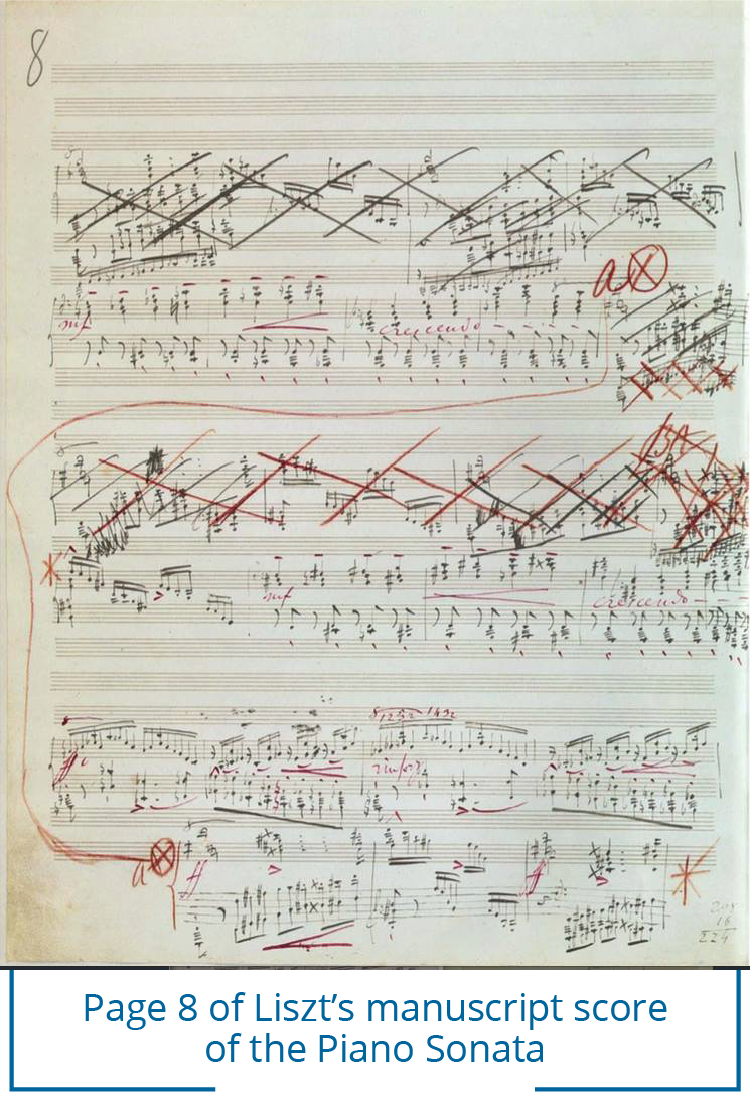 8
mf
crescendo
a
mf
crescendo
ff
rinforz
a
ff
ff
Page 8 of Liszt’s manuscript score
of the Piano Sonata